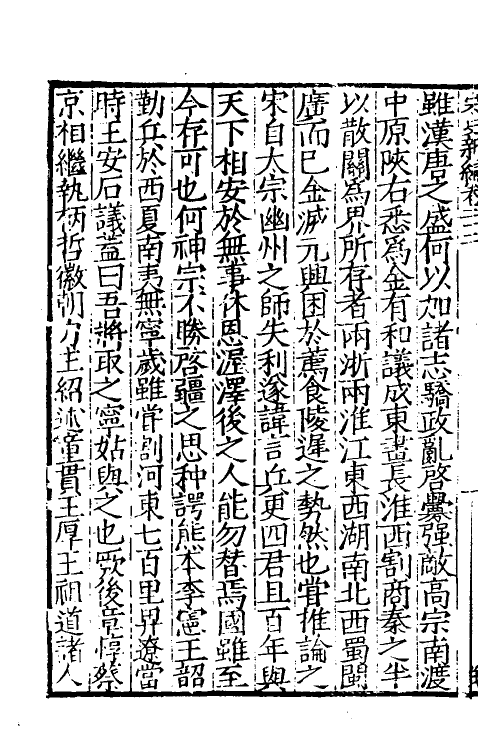 宋史新編卷二十三
雖漢唐之盛何以加諸志驕政亂啓釁强敵高宗南渡
中原陜右悉爲金有和議成東畫長淮西割商秦之半
以散關爲界所存者兩浙兩淮江東西湖南北西蜀閩
廣而已金滅元興困於薦食陵遲之勢然也嘗推論之
宋自太宗幽州之師失利遂諱言兵更四君且百年與
天下相安於無事休恩渥澤後之人能勿替焉國雖至
今存可也何神宗不勝啓疆之思种諤熊本李憲王韶
勤兵於西夏南夷無寧歲雖嘗割河東七百里界遼當
時王安石議蓋曰吾將取之寧姑與之也厥後章惇蔡
京相繼執柄哲徽朝力主紹述童貫王厚王祖道諸人